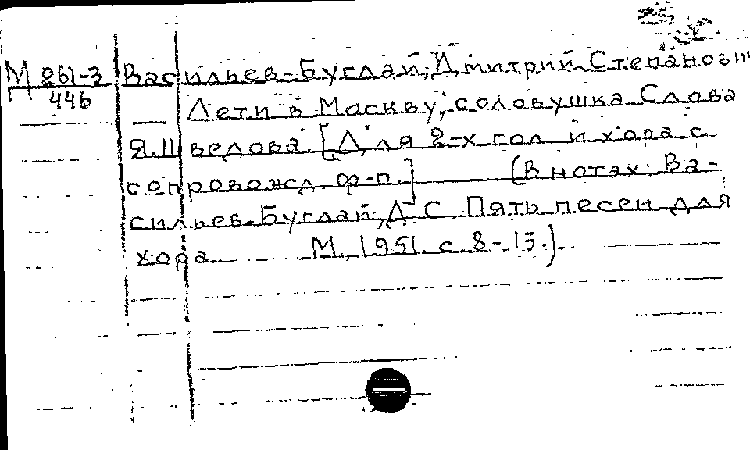 М 261-3 Васильев-Буглай, Дмитрий Степанович
446 Лети в Москву, соловушка Слова
Я. Шведова. [Для 2-х гол и хора с
сопровожд ф-п.] (В нотах: Ва-
сильев-Буглай, Д С Пять песен для
хора М., 1951 с 8-13.)